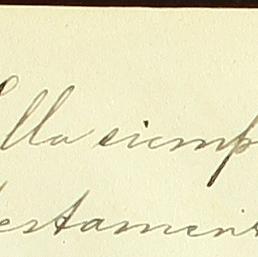 Ella siemp
testament